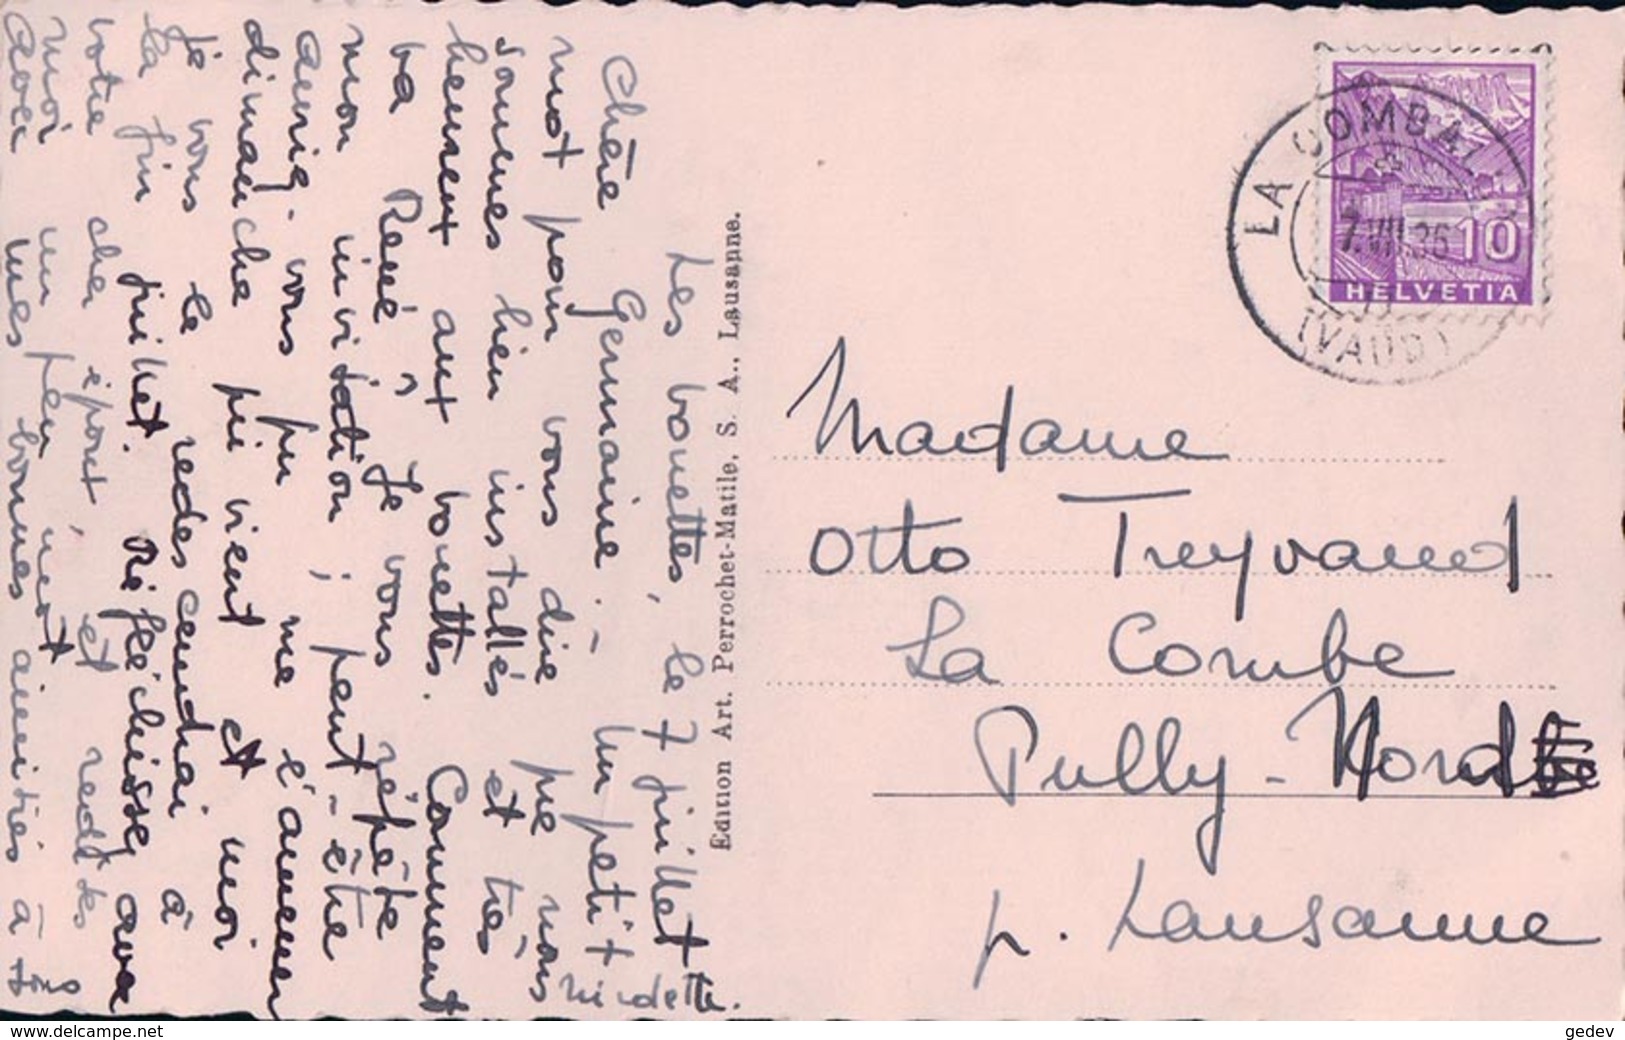 Les bouettes, le 7 juillet
Chère Germaine. – Un petit
mot pour vous dire que nous
sommes bien installés et très
heureux aux bouettes. Comment
va René ? Je vous répète
mon invitation ; peut-être
auriez-vous pu me l'amener
dimanche qui vient et moi
je vous le redescendrai à
la fin juillet. Réfléchissez avec
votre cher époux, et redites
moi un peu, mot
avec mes bonnes amitiés à tous
Edition Art. Perrochet-Matile, S. A., Lausanne.
LA COMBAZ
7.VII.36
(VAUD)
10
HELVETIA
Madame
Otto Treyvaud
La Combe
Pully-Nord
p. Lausanne
www.delcampe.net
gedev